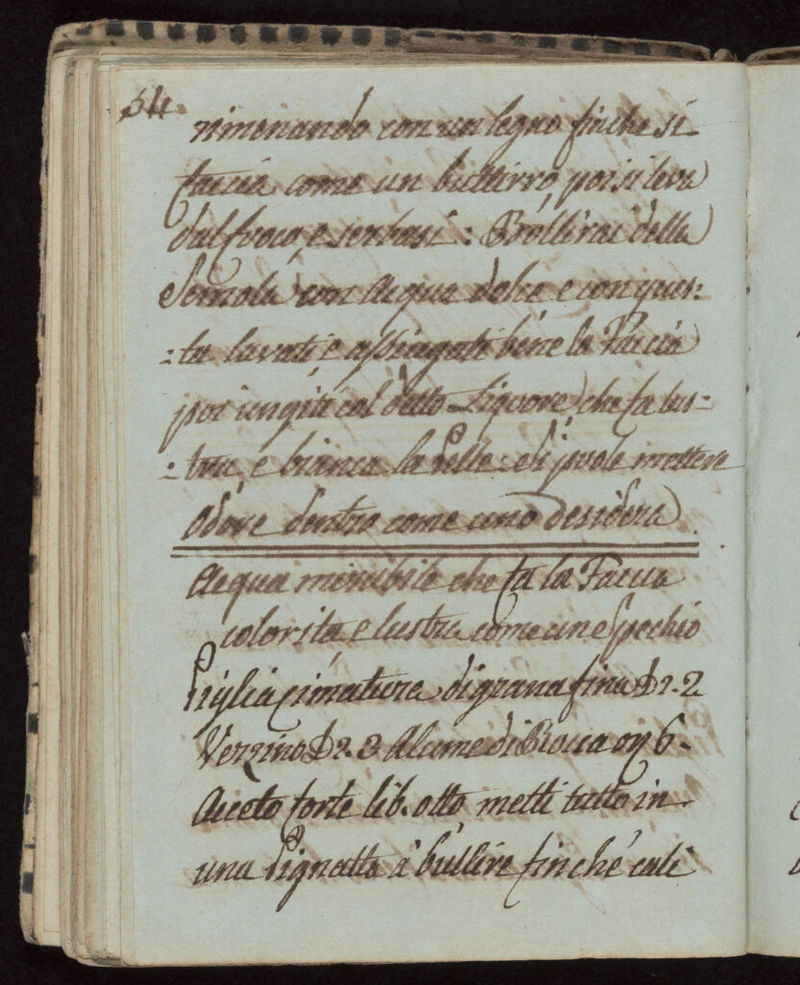 54.
rimenando con un legno finche si
faccia come un buttirro, poi si leva
dal fuoco, e serbasi: Bollirai della
Semola con Acqua dolce e con ques:
:ta lavati e assiugati bene la Faccia
poi ungiti col detto Liquore che fa lus:
:tra, e bianca la Pelle: Si puole mettere
Odore dentro come uno desidera.
Acqua mirabile che fa la Faccia
colorita e lustra come un Specchio
Piglia cimatura di grana fina D2. 2
Verzino D2. 3 Alume di Rocca on 6.
Aceto forte lib. otto metti tutto in
una Pignatta à bullire finché cali